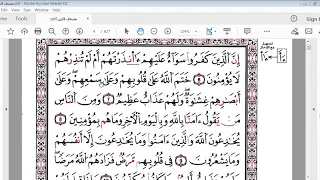 Adobe Acrobat Reader DC
إِنَّ ٱلَّذِينَ كَفَرُواْ سَوَآءٌ عَلَيْهِمُۥٓ ءَأَنذَرْتَهُمُۥٓ أَمْ لَمْ تُنذِرْهُمُۥ
لَا يُؤْمِنُونَ خَتَمَ ٱللَّهُ عَلَىٰ قُلُوبِهِمْ وَعَلَىٰ سَمْعِهِمْ وَعَلَىٰٓ
أَبْصَٰرِهِمْ غِشَٰوَةٌ وَلَهُمْ عَذَابٌ عَظِيمٌ وَمِنَ ٱلنَّاسِ
مَن يَقُولُ ءَامَنَّا بِٱللَّهِ وَبِٱلْيَوْمِ ٱلْأٓخِرِ وَمَا هُم بِمُؤْمِنِينَ
يُخَٰدِعُونَ ٱللَّهَ وَٱلَّذِينَ ءَامَنُواْ وَمَا يُخَٰدِعُونَ إِلَّآ أَنفُسَهُمْ
وَمَا يَشْعُرُونَ فِي قُلُوبِهِم مَّرَضٌ فَزَادَهُمُ ٱللَّهُ مَرَضًا